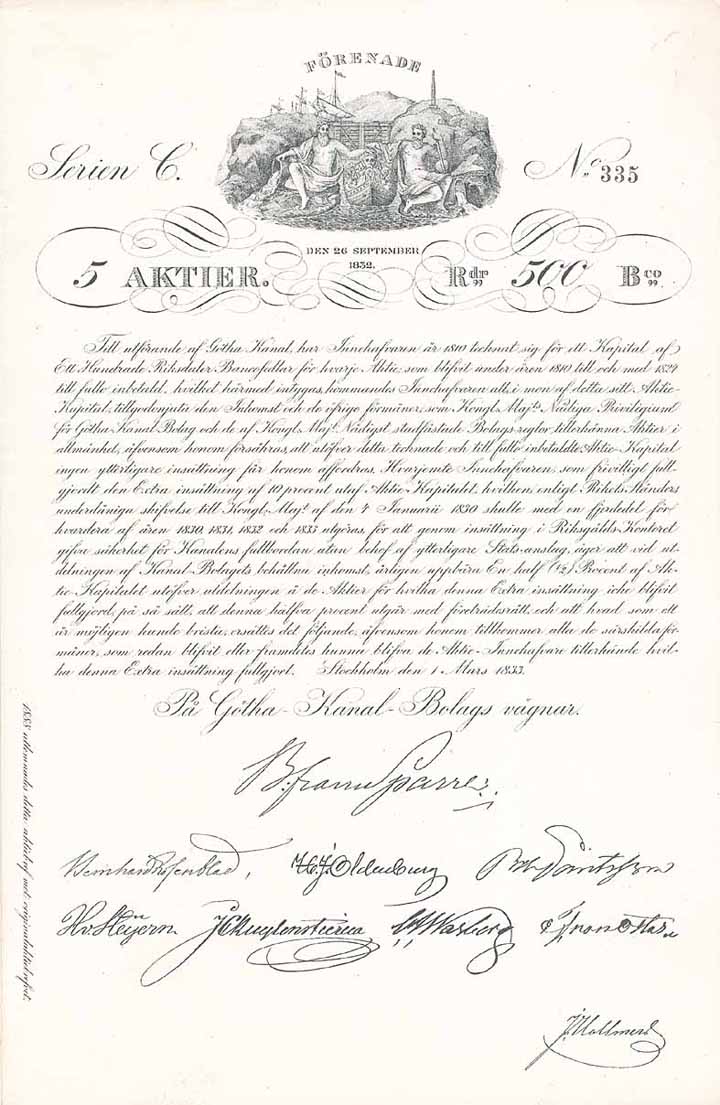 FÖRENADE
Serien C. No. 335
DEN 26 SEPTEMBER
1832.
5 AKTIER. Rdr 500 Bco
Till utförande af Götha Kanal, har Innehafvaren år 1810 tecknat sig för ett Kapital af
Ett Hundrade Riksdaler Bancosedlar för hvarje Aktie, som blifvit under åren 1810 till och med 1824
till fullo inbetald, hvilket härmed intygas, kommandes Innehafvaren att, i mon af detta sitt Aktie-
Kapital, tillgodonjuta den Inkomst och de öfriga förmåner, som Kongl. Maj:ts Nådiga Privilegium
för Götha Kanal Bolag och de af Kongl. Maj:t Nådigst stadfästade Bolags reglor tillerkänna Aktier i
allmänhet, äfvensom honom försäkras, att utöfver detta tecknade och till fullo inbetaldte Aktie-Kapital
ingen ytterligare insättning får honom affordras. Hvarjemte Innehafvaren, som frivilligt full-
gjordt den Extra insättning af 10 procent utaf Aktie-Kapitalet, hvilken, enligt Rikets Ständers
underdåniga skrifvelse till Kongl. Maj:t af den 4 Januarii 1830 skulle med en fjerdedel för
hvardera af åren 1830, 1831, 1832 och 1833 utgöras, för att genom insättning i Riksgälds-Kontoret
gifva säkerhet för Kanalens fullbordan utan behof af ytterligare Stats-anslag, äger att vid ut-
delningen af Kanal-Bolagets behållna inkomst, årligen uppbära En half (½) Procent af Ak-
tie-Kapitalet utöfver utdelningen å de Aktier för hvilka denna Extra insättning icke blifvit
fullgjord, på så sätt, att denna halfva procent utgår med företrädsrätt, och att hvad som ett
år möjligen kunde brista, ersättes det följande, äfvensom honom tillkommer alla de särskilda för-
måner, som redan blifvit eller framdeles kunna blifva de Aktie-Innehafvare tillerkände hvil-
ka denna Extra insättning fullgjort. Stockholm den 1 Mars 1833.
På Götha-Kanal-Bolags vägnar.
B. von Sparre
Bernhard Rosenblad, H. J. Oldenburg
H. v. Heijern. J C Kuylenstierna
1883 utlemnades detta aktiebref mot originalaktiebrefvet.